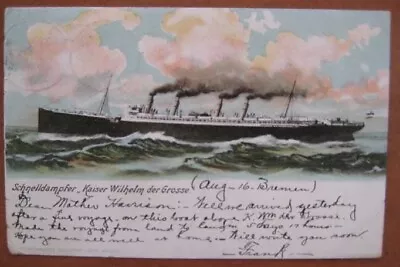 Schnelldampfer „Kaiser Wilhelm der Grosse
(Aug - 16. Bremen)
Dear Mother Harrison: - Well we arrived yesterday
after a fine voyage on this boat above K. Wm der Grosse.
Made the voyage from land to land in 5 days 17 hours -
Hope you are all well at home - Will write you soon
Frank